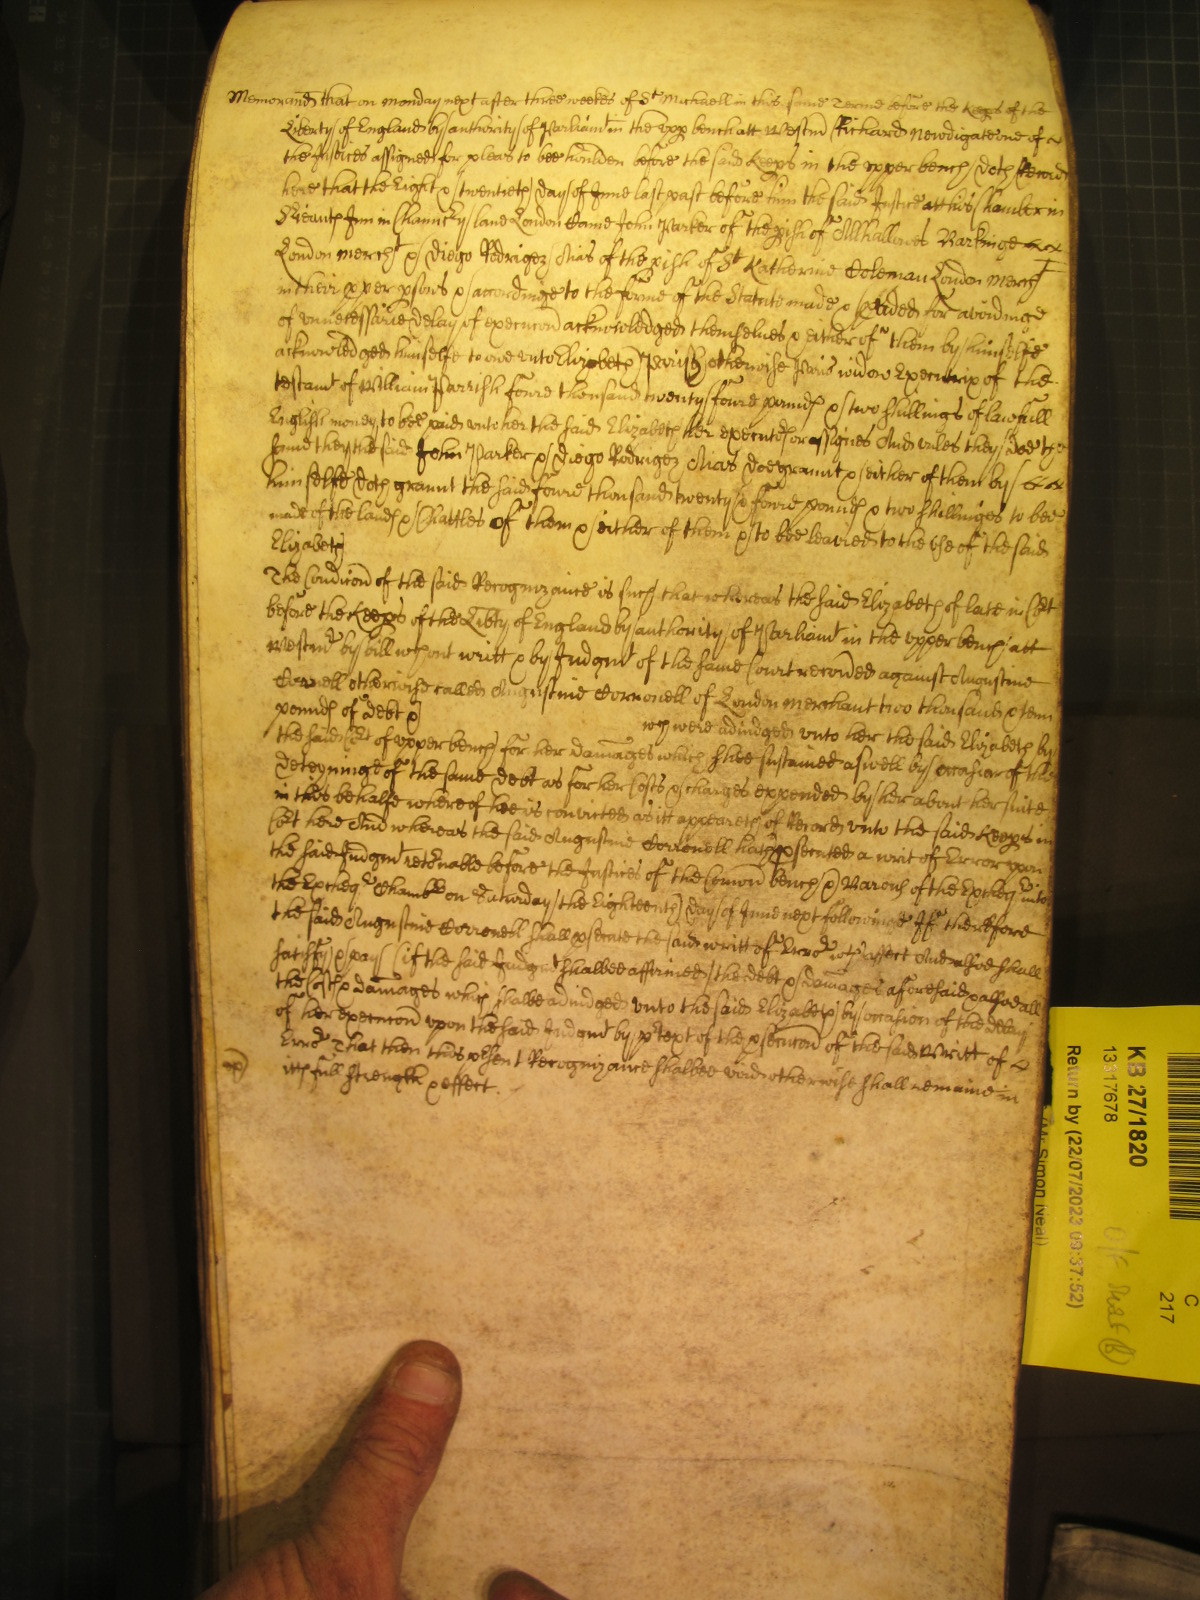 Memorand that on monday next after three weekes of St Michaell in this same Terme before the Keeps of the
Liberty of England by authority of Parliamt in the upp bench att Westmr Richard Newdigate one of
the Justices assigned for pleas to bee houlden before the said Keeps in the upper bench doth Record
here that the Eight & twentieth day of June last past before him the said Justice att his Chamber in
Sjeants Inn in Chauncky lane London Came John Parker of the pish of Allhallowes Barkinge
London mercht & Diego Rodrigez Arias of the pish of St Katherine Coleman London mercht
in their pper psons & accordinge to the forme of the Statute made & pvided for avoidinge
of unnecessarie delay of execucon acknowledged themselves & either of them by himselfe
acknowledged himselfe to owe unto Elizabeth Parish otherwise Paris widow Executrix of the
testamt of William Parrish foure thousand twenty foure pounds & two shillings of lawfull
English money to bee paid unto her the said Elizabeth her executrs or assignes And unles they doe the
same they the said John Parker & Diego Rodrigez Arias doe graunt & either of them by
himselfe doth graunt the said foure thousand twenty & foure pounds & two shillinges to bee
made of the lands & Chattles of them & either of them & to bee leavied to the Use of the said
Elizabeth
The Condicon of the said Recognizance is such that whereas the said Elizabeth of late in Cort
before the Keeps of the Libty of England by authority of Parliamt in the upper bench att
Westmr by bill wthout writt & by Judgmt of the same Court recored against Augustine
Coronell otherwise called Augustine Corronell of London merchant two thousand & tenn
pounds of debt & wch were adiudged unto her the said Elizabeth by
the said Cort of upper bench for her damages which shee sustained aswell by occasion of the
deteyninge of the same debt as for her Costs & charges expended by her about her suite
in this behalfe whereof hee is convicted as itt appeareth of Record unto the said Keeps in
Cort here And whereas the said Augustine Corronell hath psecuted a writ of Error upon
the said Judgmt retornable before the Justices of the Comon bench & Barons of the Excheqr into
the Excheqr Chamber on Saturday the Eighteenth day of June next followinge If therefore
the said Augustine Corronell shall psecute the said writt of Error wth effect And alsoe shall
satisfy & pay (if the said Judgmt shalbee affirmed) the debt & damages aforesaid & alsoe all
the Costs & damages which shalbe adiudged unto the said Elizabeth by occasion of the delay
of her execucon upon the said Judgmt by ptext of the psecucon of the said Writt of
Error That then this psent Recognizance shalbee void otherwise shall remaine in
itts full strength & effect.
KB 27/1820
13317678
Return by (22/07/2023 09:37:52)
(Mr Simon Neal)
C
217